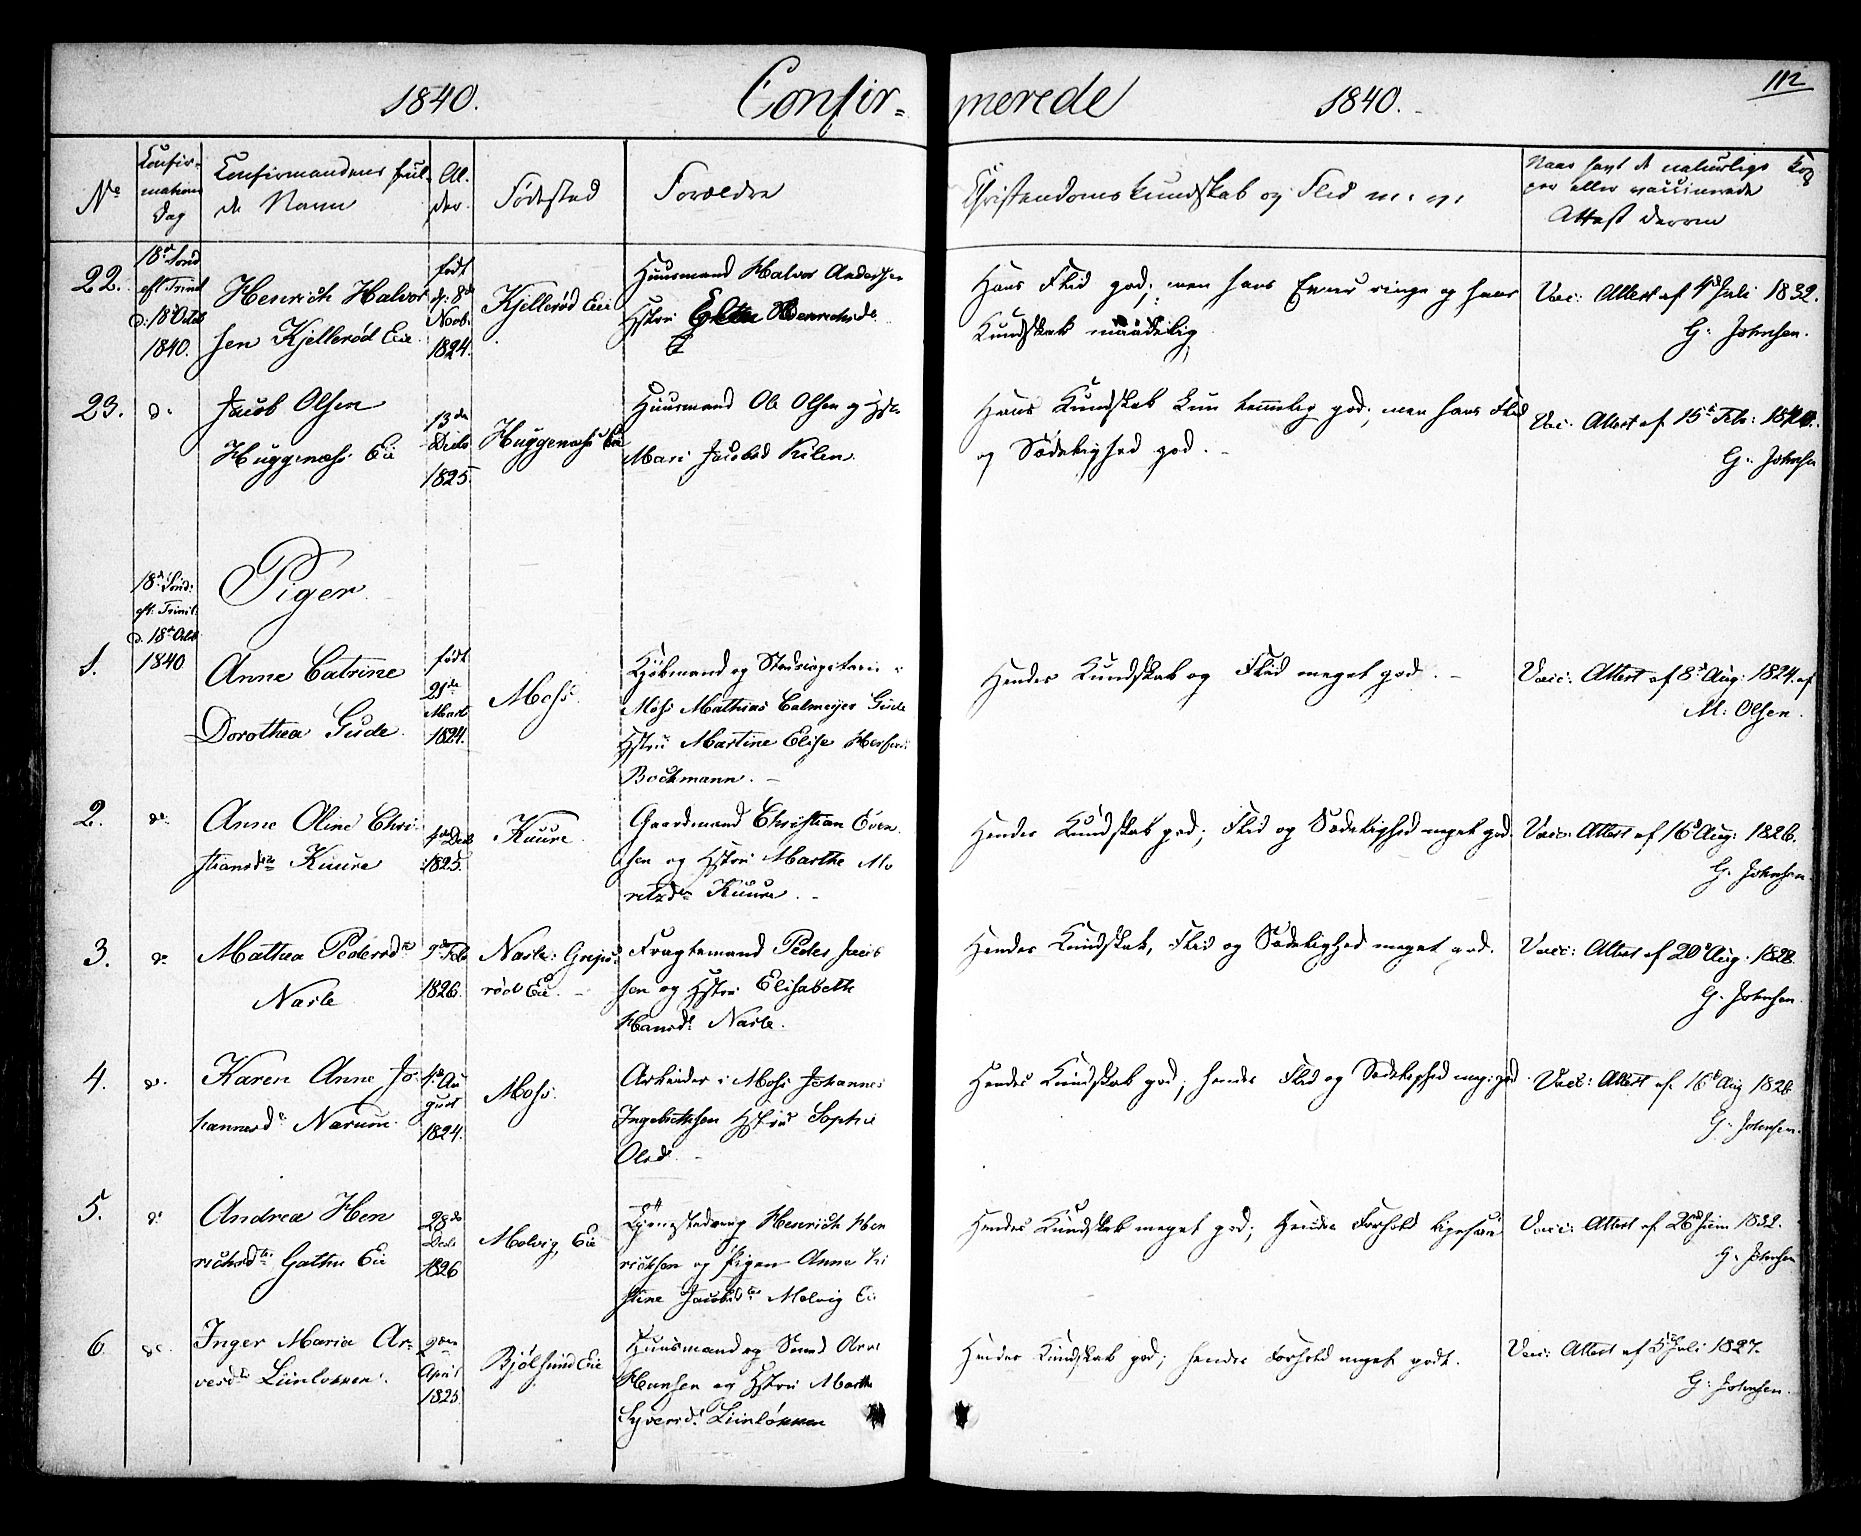 112
1840. Confir= merede 1840.
No
Confir-
mations
Dag
Confirmandens ful-
de Navn
Al-
der.
Fødested
Forældre
Christendoms kundskab og Flid m. v.
Naar havt de naturlige Kop
per eller vaccinerede
Attest derom
22.
18de Sønd
eft Trinit
d: 18de Octob
1840.
Henrich Halvor
sen Kjellerød Eie
født
d: 8de
Novbr
1824.
Kjellerød Eie
Huusmand Halvor Andersen
Hstru Henrichsdr
Hans Flid god; men hans Evner ringe og hans
Kundskab maadelig
Vac: Attest af 4de Juli 1832.
G. Johnsen.
23.
do
Jacob Olsen
Huggenæhs Eie
13de
Decbr
1825.
Huggenæhs Eie
Huusmand Ole Olsen og Hstr
Mari Jacobsd Kilen
Hans Kundskab kun temmelig god; men hans Flid
og Sædelighed god.
Vac: Attest af 15de Febr: 1840.
G. Johnsen
Piger
18de Sønd:
eft: Trinit:
d. 18de Octbr
1840
1.
Anne Catrine
Dorothea Gude
født
21de
Marts
1824.
Mohs.
Kjøbmand og
Mohs Mathias Calmeijer Gude
Hstru Martine Elise
Bockmann.
Hendes Kundskab og Flid meget god.
Vacc: Attest af 8de Aug: 1824 af
M: Olsen.
2.
do
Anne Oline Chri-
stiansdr Kuure
4de Decbr
1825.
Kuure.
Gaardmand Christian Even
sen og Hstru Marthe Mo
ritzdr Kuure.
Hendes Kundskab god; Flid og Sædelighed meget god
Vacc: Attest af 16de Aug: 1826.
G. Johnsen
3.
do
Mathea Pedersdr
Narle
9de Feb
1826.
Narle: Grepsi
rød Eie.
Fragtemand Peder Jacob
sen og Hstru Elisabeth
Hansd. Narle.
Hendes Kundskab, Flid og Sædelighed meget god.
Vacc: Attest af 20de Aug. 1828.
G. Johnsen
4.
do.
Karen Anne Jo-
hannesdr Narum
4de Au
gust
1824.
Mohs.
Arbeider i Mohs Johannes
Ingebrethsen Hstru Sophie
Olsd.
Hendes Kundskab god; hendes Flid og Sædelighed meg: god
Vacc: Attest af 16de Aug 1826
G. Johnsen.
5.
do
Andrea Hen
richsdr Gathu Eie
28de
Decbr
1826
Molvig Eie
Henrich Hen
richsen og Pigen Anne Ki
stine Jacobsdr Molvig Eie
Hendes Kundskab meget god; Hendes Forhold ligesaa
Vacc: Attest af 26de Juni 1832.
G. Johnsen
6.
do.
Inger Maria Ar-
vesdr Liinløkken.
9den
April
1825
Bjølsund Eie
Huusmand og Smed Arve
Hansen og Hstru Marthe
Syversd. Liinløkken
Hendes Kundskab god; hendes Forhold meget godt.
Vac: Attest af 5de Juli 1827.
G. Johnsen.